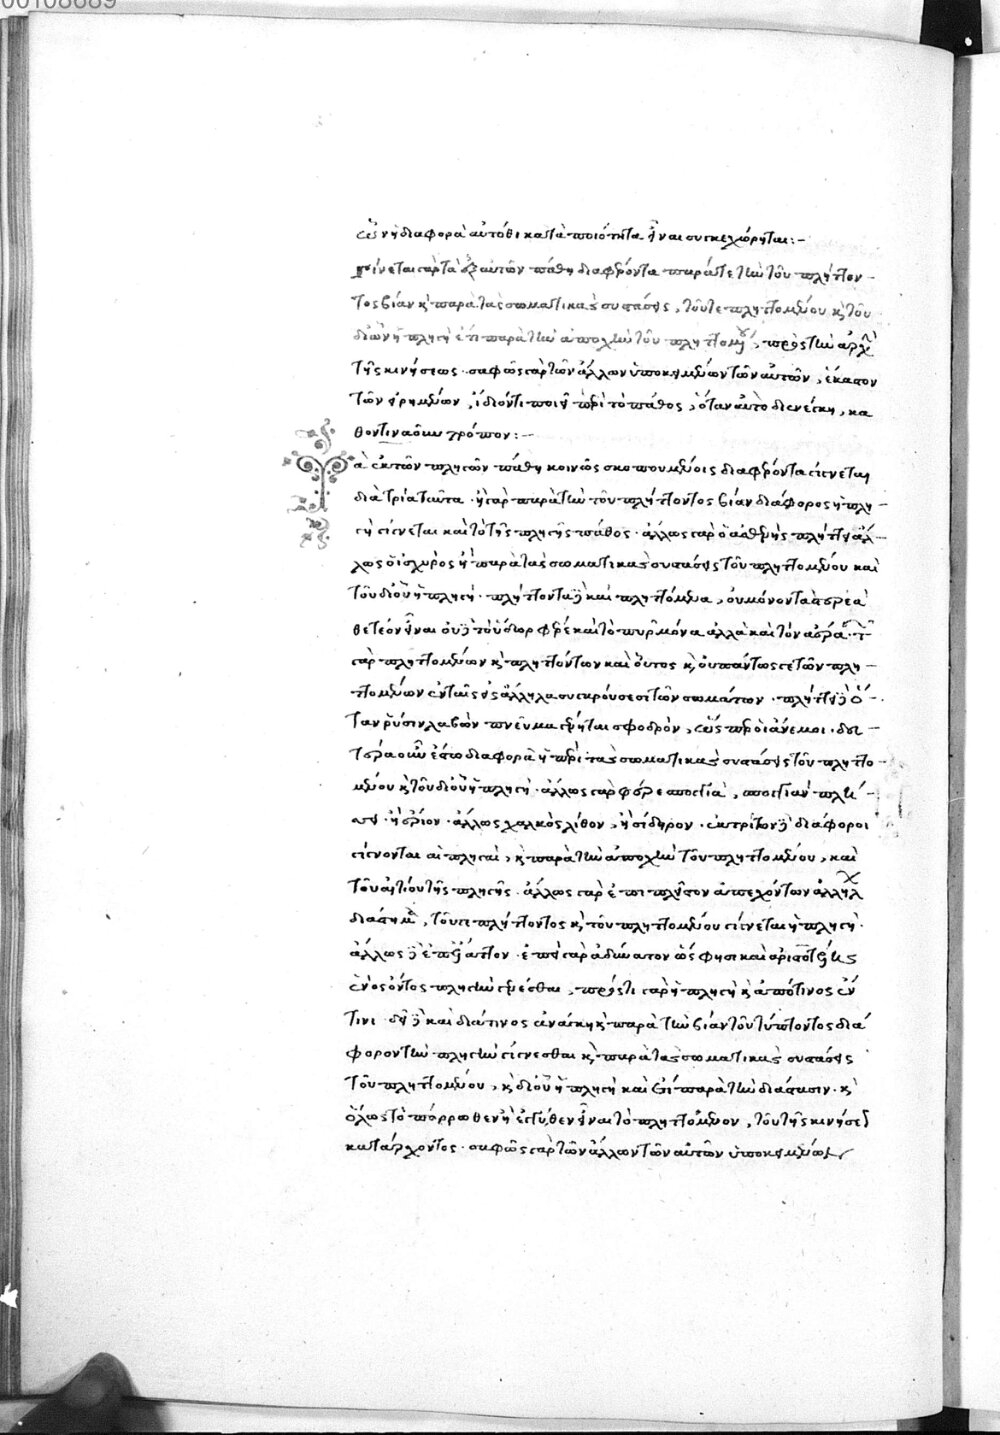 00108689
ὧν ἡ διαφορὰ αὐτόθι κατὰ ποιότητα εἶναι συγκεχώρηται:-
γίνεται γὰρ τὰ ἐξ αὐτῶν πάθη διαφέροντα παρά τε τὴν τοῦ πλήττον-
τος βίαν κ παρὰ τὰς σωματικὰς συστάσεις, τοῦτε πληττομένου κ τοῦ
δι' ὧν ἡ πληγὴ ἔτι παρὰ τὴν ἀποχὴν τοῦ πληττομένου, πρὸς τὴν ἀρχὴν
τῆς κινήσεως· σαφῶς γὰρ τῶν ἄλλων ὑποκειμένων τῶν αὐτῶν, ἕκαστον
τῶν εἰρημένων, ἴδιόν τι ποιεῖ περὶ τὸ πάθος, ὅταν αὐτὸ διενέγκῃ, κα
θ' ὅντινα οὖν τρόπον:-
Τὰ ἐκ τῶν πληγῶν πάθη κοινῶς σκοπουμένοις διαφέροντα γίγνεται
διὰ τρία ταῦτα· ἢ γὰρ παρὰ τὴν τοῦ πλήττοντος βίαν διάφορος ἡ πλη-
γὴ γίγνεται καὶ τὸ τῆς πληγῆς πάθος· ἄλλως γὰρ ὁ ἀσθενὴς πλήττει ἄλ-
λως ὁ ἰσχυρὸς ἢ παρὰ τὰς σωματικὰς συστάσεις τοῦ πληττομένου καὶ
τοῦ δι' οὗ ἡ πληγή· πλήττοντα δὲ καὶ πληττόμενα, οὐ μόνον τὰ στερεὰ
θετέον εἶναι οὐδὲ τὸ ὕδωρ φέρε καὶ τὸ πῦρ μόνα ἀλλὰ καὶ τὸν ἀέρα· τῶν
γὰρ πληττομένων κ πληττόντων καὶ οὗτος κ οὐ πάντως γε τῶν πλη-
ττομένων ἐν ταῖς εἰς ἄλληλα συγκρούσεσι τῶν σωμάτων· πλήττει δὲ ὅ-
ταν ῥύσιν λαβὼν πνεῦμα γένηται σφοδρὸν, ὡς περ οἱ ἄνεμοι· δευ-
τέρα οὖν ἔστω διαφορὰ ἡ περὶ τὰς σωματικὰς συστάσεις τοῦ πληττο-
μένου κ τοῦ δι' οὗ ἡ πληγή· ἄλλως γὰρ φέρε σπογγιὰ, σπογγιὰν πλή-
ττει ἢ ἔριον· ἄλλως χαλκὸς λίθον, ἢ σίδηρον· ἐκ τρίτων δὲ διάφοροι
γίγνονται αἱ πληγαὶ, κ παρὰ τὴν ἀποχὴν τοῦ πληττομένου, καὶ
τοῦ αἰτίου τῆς πληγῆς· ἄλλως γὰρ ἐπὶ πλεῖστον ἀπεχόντων ἀλλήλων
διάστημα, τοῦ τε πλήττοντος κ τοῦ πληττομένου γίγνεται ἡ πληγή·
ἄλλως δὲ ἐπ' ἔλαττον· ἐπεὶ γὰρ ἀδύνατον ὥς φησι καὶ ἀριστοτέλης
ἑνὸς ὄντος πληγὴν γενέσθαι, πρός τι γὰρ ἡ πληγὴ κ ἀπό τινος ἔν
τινι· δεῖ δὲ καὶ διά τινος ἀνάγκη κ παρὰ τὴν βίαν τοῦ τύπτοντος διά
φορον τὴν πληγὴν γίγνεσθαι κ παρὰ τὰς σωματικὰς συστάσεις
τοῦ πληττομένου, κ δι' οὗ ἡ πληγὴ καὶ ἔτι παρὰ τὴν διάστασιν· κ
ὅλως τὸ πόρρωθεν ἢ ἐγγύθεν εἶναι τὸ πληττόμενον, τοῦ τῆς κινήσεως
κατάρχοντος· σαφῶς γὰρ τῶν ἄλλων τῶν αὐτῶν ὑποκειμένων